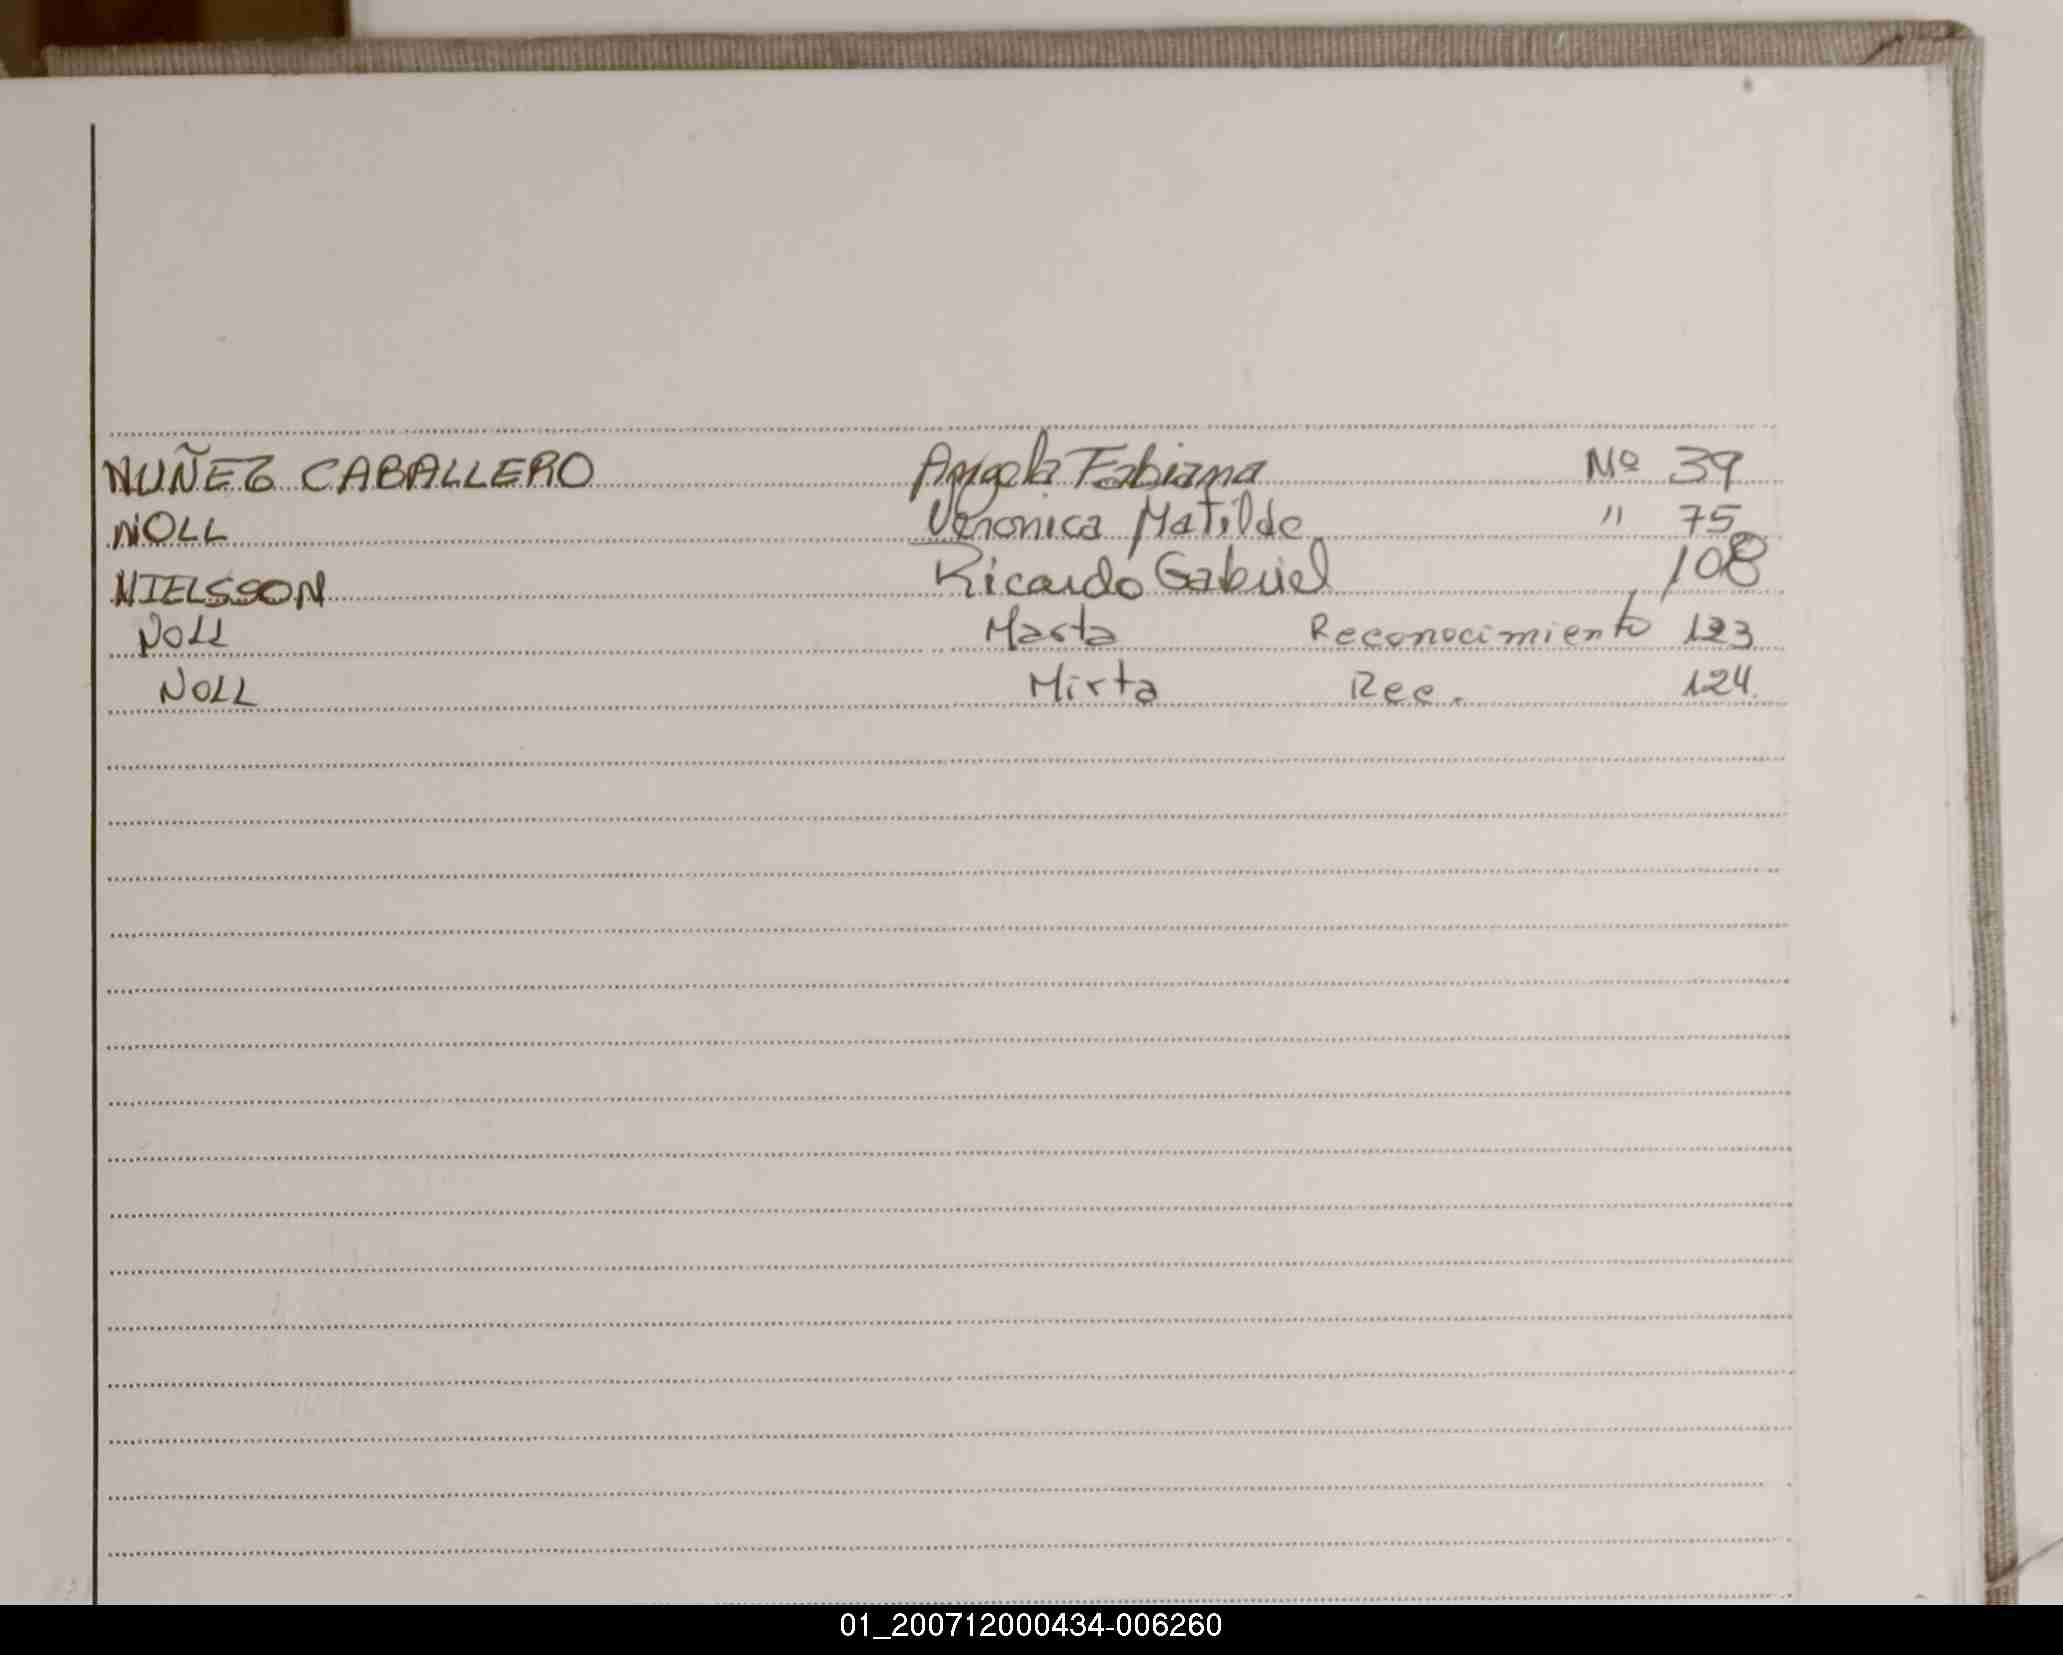 NUÑEZ CABALLERO Angela Fabiana Nº 39
NOLL Veronica Matilde " 75
NIELSSON Ricardo Gabriel 108
NOLL Marta Reconocimiento 123
NOLL Mirta Rec. 124
01_200712000434-006260